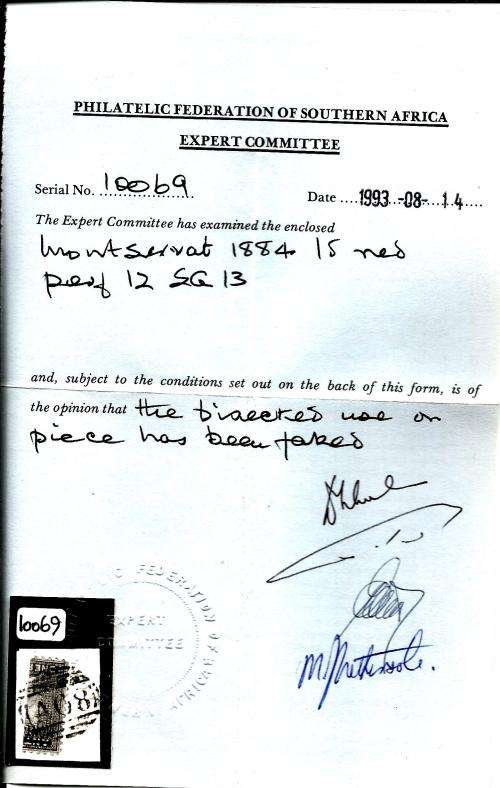 PHILATELIC FEDERATION OF SOUTHERN AFRICA
EXPERT COMMITTEE
Serial No. 10069
Date ....1993.-08-.14....
The Expert Committee has examined the enclosed
Montserrat 1884 1S red
perf 12 SG 13
and, subject to the conditions set out on the back of this form, is of
the opinion that the bisected use on
piece has been faked
PHILATELIC FEDERATION
EXPERT
COMMITTEE
AFRICA
10069
A08